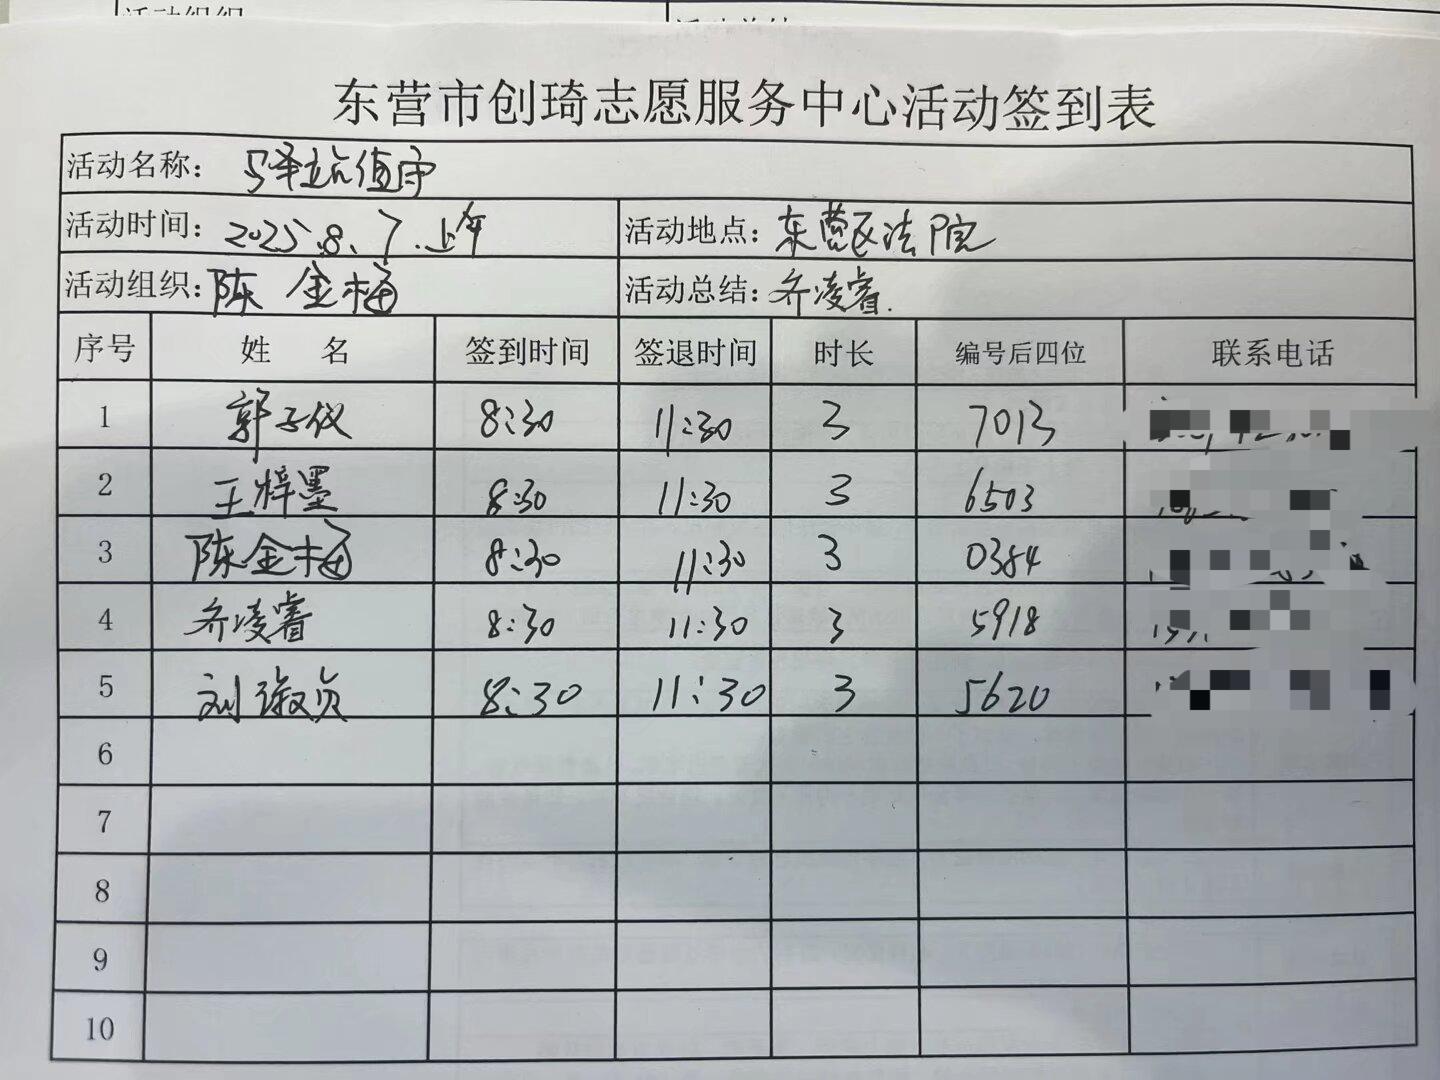 东营市创琦志愿服务中心活动签到表
活动名称：驿站值守
活动时间：2025.8.7.上午 活动地点：东营区法院
活动组织：陈金梅 活动总结：齐凌睿.
序号 姓名 签到时间 签退时间 时长 编号后四位 联系电话
1 郭子仪 8:30 11:30 3 7013
2 王梓墨 8:30 11:30 3 6503
3 陈金梅 8:30 11:30 3 0384
4 齐凌睿 8:30 11:30 3 5918
5 刘淑贞 8:30 11:30 3 5620
6
7
8
9
10